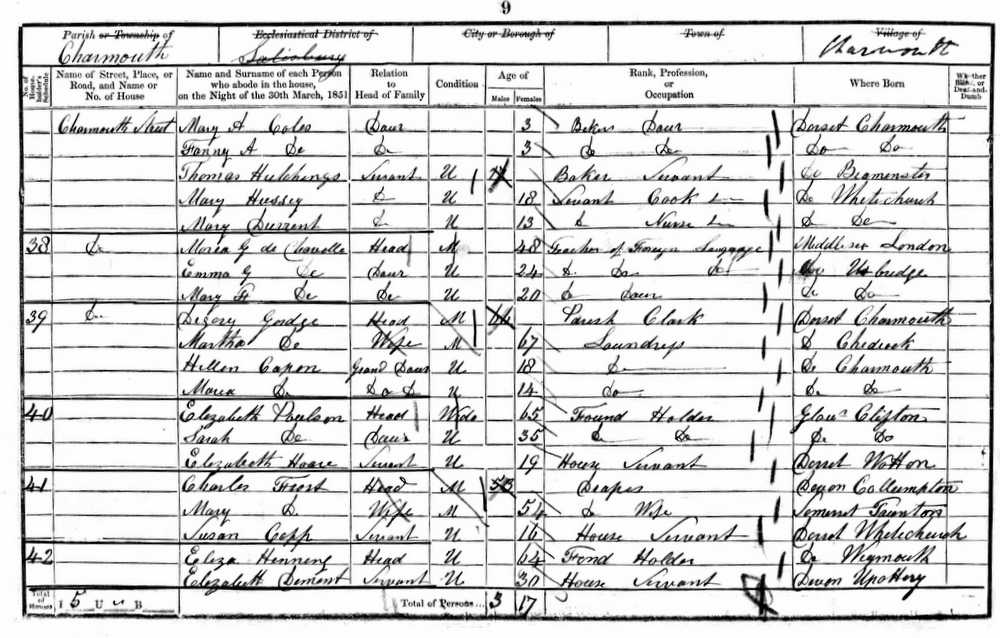 9
Parish or Township of Ecclesiastical District of City or Borough of Town of Village of
Charmouth Salisbury Charmouth
No. of Householder's Schedule Name of Street, Place, or Road, and Name or No. of House Name and Surname of each Person who abode in the house, on the Night of the 30th March, 1851 Relation to Head of Family Condition Age of Males Females Rank, Profession, or Occupation Where Born Whether Blind, or Deaf-and-Dumb
Charmouth Street Mary A Coles Daur 3 Baker Daur Dorset Charmouth
Fanny A Do Do 3 Do Do Do Do
Thomas Hutchings Servant U Baker Servant Do Beaminster
Mary Hussey Do U 18 Servant Cook Do Whitechurch
Mary Durrent Do U 13 Do Nurse Do Do
38 Do Maria G de Head M 48 Teacher of Foreign Language Middlesex London
Emma G Do Daur U 24 Do Do Do Uxbridge
Mary Do Do U 20 Do Daur Do Do
39 Do Degory Gordge Head M 64 Parish Clark Dorset Charmouth
Martha Do Wife M 67 Laundress Do Chedieock
Hellen Capon Grand Daur U 18 Do Do Charmouth
Maria Do Do Do U 14 Do Do Do
40 Elezabeth Poulson Head Wido 65 Found Holder Glous Clifton
Sarah Do Daur U 35 Do Do Do Do
Elezabeth Hoare Servant U 19 House Servant Dorset Wotton
41 Charles Frost Head M 53 Draper Devon Collumpton
Mary Do Wife M 54 Do Wife Somerset Taunton
Susan Copp Servant U 16 House Servant Dorset Whitechurch
42 Eleza Hennen Head U 64 Fond Holder Do Weymouth
Elezabeth Dement Servant U 30 House Servant Devon Upottery
Total of Houses I 5 U B Total of Persons... 3 17